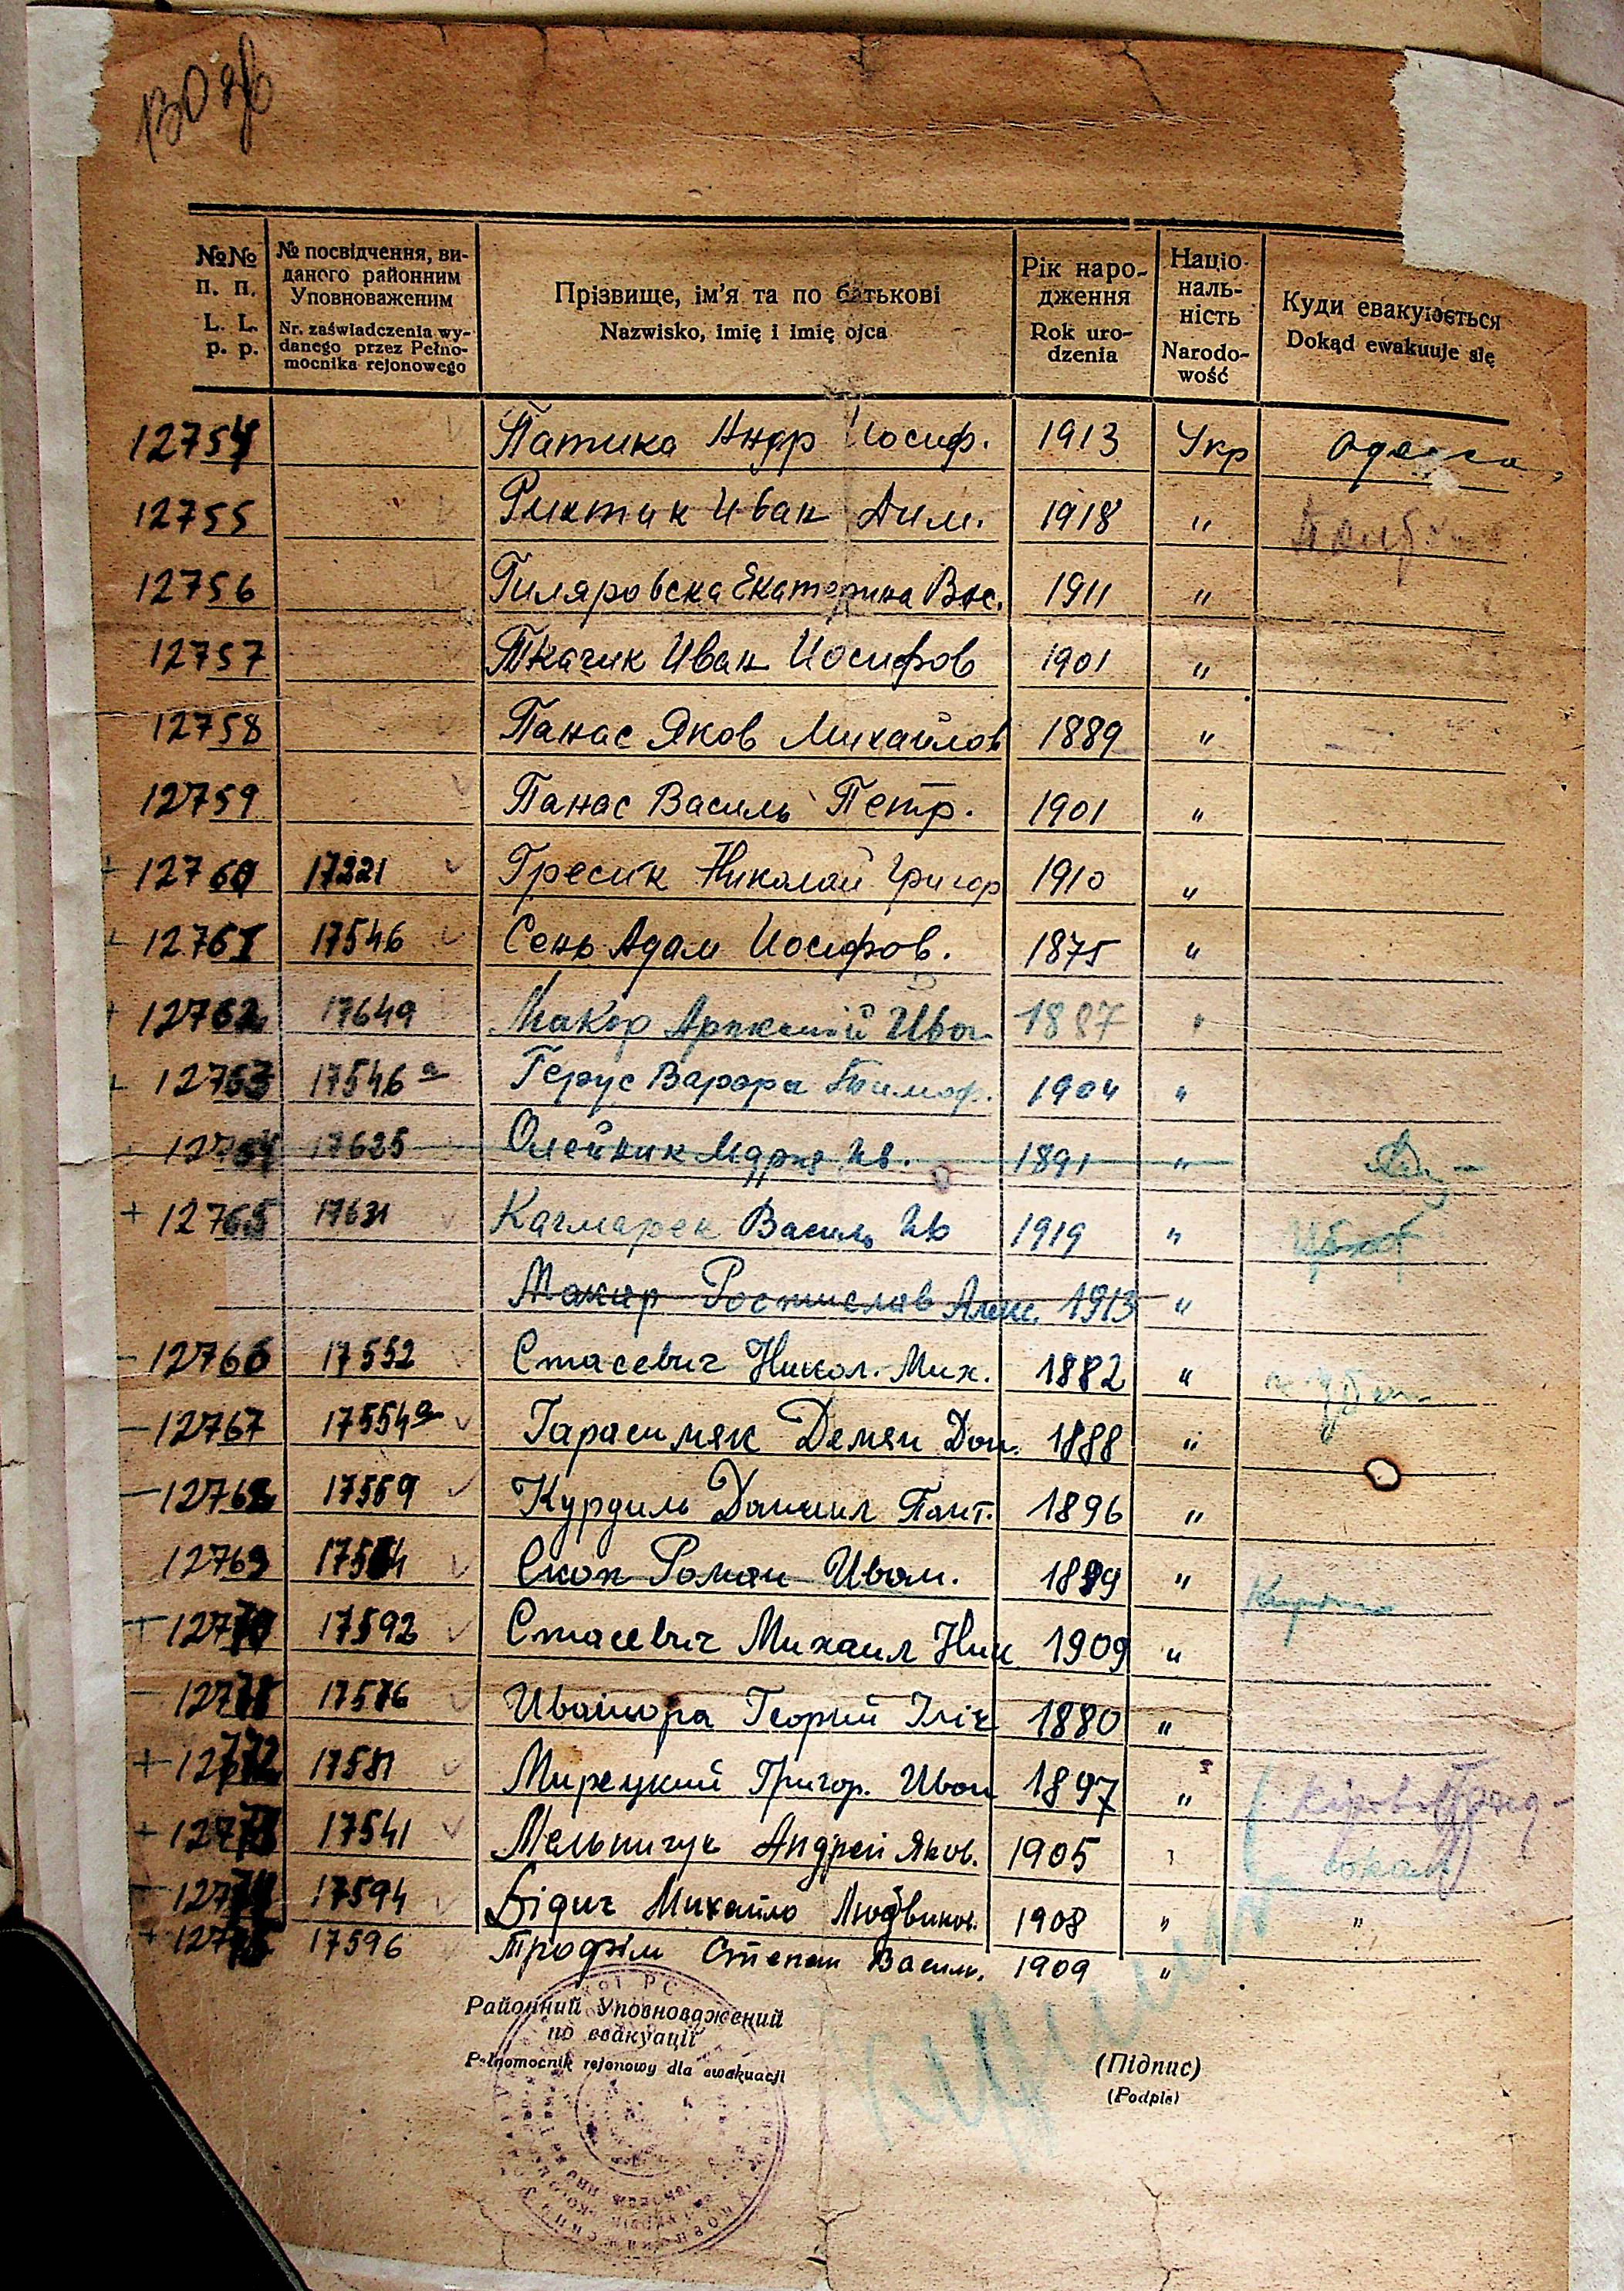 №№ п. п.
L. L. p. p.
№ посвідчення, ви-
даного районним
Уповноваженим
Nr. zaświadczenia wy-
danego przez Pełno-
mocnika rejonowego
Прізвище, ім’я та по батькові
Nazwisko, imię i imię ojca
Рік наро-
дження
Rok uro-
dzenia
Націо-
наль-
ність
Narodo-
wość
Куди евакуюється
Dokąd ewakuuje się
12754 Патика Андр Иосиф. 1913 Укр Одесса
12755 Иван Дим. 1918 "
12756 Гиляровска Екатерина Вас. 1911 "
12757 Ткачик Иван Иосифов 1901 "
12758 Панас Яков Михайлов 1889 "
12759 Панас Василь Петр. 1901 "
12760 17221 Гресик Николай Григор 1910 "
12761 17546 Сень Адам Иосифов. 1875 "
12762 17649 Макор Ива 1887 "
12763 17546а Герус Варвра Тимоф. 1904 "
12764 17625 Олейник Ив. 1891 "
12765 17631 Качмарек Василь Ив 1919 "
Макар Ростислав Алекс. 1913 "
12766 17552 Стасевич Никол. Мих. 1882 "
12767 17554а Гарасимяк Демян Дан. 1888 "
12768 17559 Курдиль Даниил Пант. 1896 "
12769 Скоп Роман Иван. 1899 "
12770 17592 Стасевич Михаил Ник 1909 "
12771 17576 Георгий Іліч 1880 "
12772 17581 Мирецкий Григор. Иван 1897 "
12773 17541 Мельничук Андрей Яков. 1905 "
12774 17594 Бідич Михайло Людвиков. 1908 " "
12775 17596 Трофім Степан Васил. 1909 "
Районний Уповноважений
по евакуації
Pełnomocnik rejonowy dla ewakuacji
(Підпис)
(Podpis)